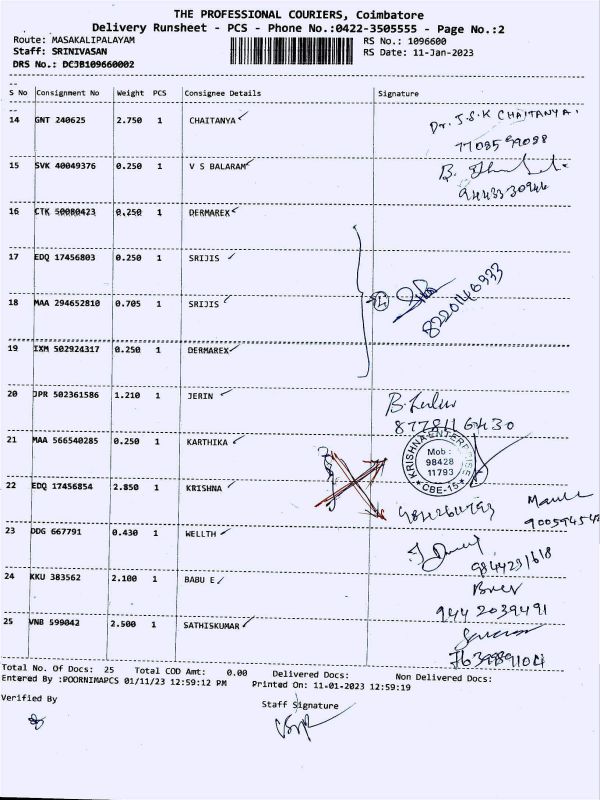 THE PROFESSIONAL COURIERS, Coimbatore
Delivery Runsheet - PCS - Phone No.:0422-3505555 - Page No.:2
Route: MASAKALIPALAYAM
RS No.: 1096600
Staff: SRINIVASAN
RS Date: 11-Jan-2023
DRS No.: DCJB109660002
S No Consignment No Weight PCS Consignee Details Signature
14 GNT 240625 2.750 1 CHAITANYA Dr. J.S.K CHAITANYA.
15 SVK 40049376 0.250 1 V S BALARAM
9443330946
16 CTK 50080423 0.250 1 DERMAREX
17 EDQ 17456803 0.250 1 SRIJIS
18 MAA 294652810 0.705 1 SRIJIS
8220146933
19 IXM 502924317 0.250 1 DERMAREX
20 JPR 502361586 1.210 1 JERIN
8778116430
21 MAA 566540285 0.250 1 KARTHIKA
KRISHNA ENTERPRISE
Mob :
98428
11793
CBE-15
22 EDQ 17456854 2.850 1 KRISHNA
23 DDG 667791 0.430 1 WELLTH
9844231618
24 KKU 383562 2.100 1 BABU E
9442039491
25 VNB 599042 2.500 1 SATHISKUMAR
Total No. Of Docs: 25 Total COD Amt: 0.00 Delivered Docs: Non Delivered Docs:
Entered By :POORNIMAPCS 01/11/23 12:59:12 PM Printed On: 11-01-2023 12:59:19
Verified By
Staff Signature